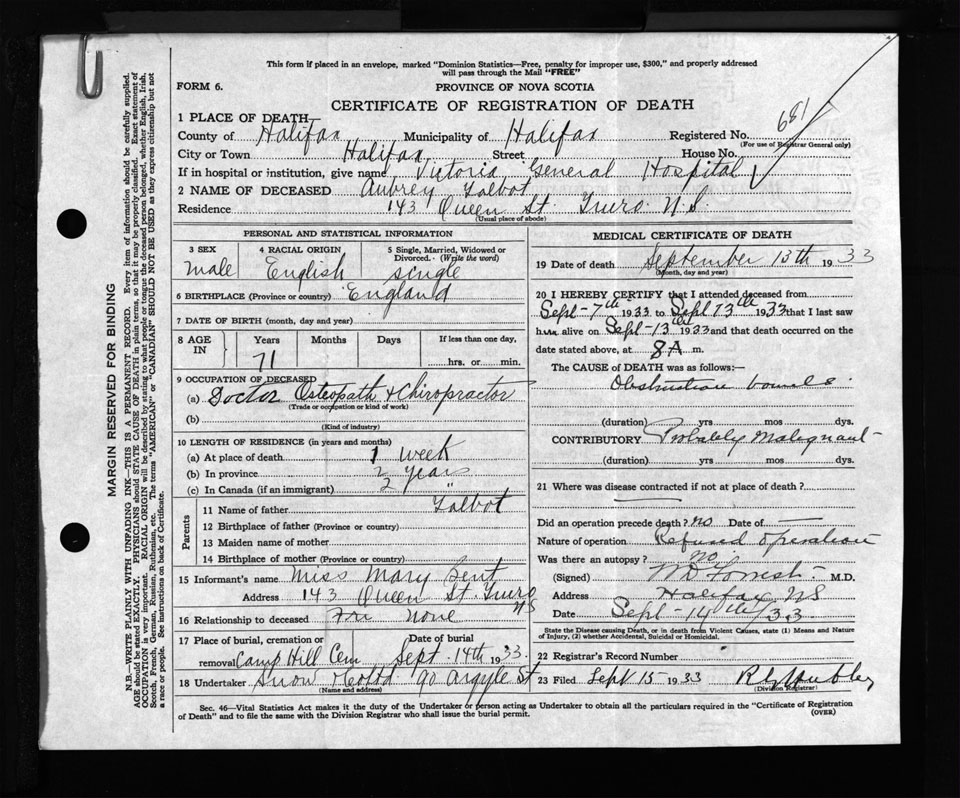 This form if placed in an envelope, marked "Dominion Statistics—Free, penalty for improper use, $300," and properly addressed
will pass through the Mail "FREE"
FORM 6.
PROVINCE OF NOVA SCOTIA
CERTIFICATE OF REGISTRATION OF DEATH
1 PLACE OF DEATH
County of Halifax Municipality of Halifax Registered No. 681
(For use of Registrar General only)
City or Town Halifax Street House No.
If in hospital or institution, give name Victoria General Hospital
2 NAME OF DECEASED Aubrey Talbot
Residence 143 Queen St. Truro. N.S.
(Usual place of abode)
PERSONAL AND STATISTICAL INFORMATION
3 SEX 4 RACIAL ORIGIN 5 Single, Married, Widowed or
Divorced. (Write the word)
Male English single
6 BIRTHPLACE (Province or country) England
7 DATE OF BIRTH (month, day and year)
8 AGE IN Years Months Days If less than one day,
71 hrs. or min.
9 OCCUPATION OF DECEASED
(a) Doctor Osteopath & Chiropractor
(Trade or occupation or kind of work)
(b)
(Kind of industry)
10 LENGTH OF RESIDENCE (in years and months)
(a) At place of death 1 week
(b) In province 2 years
(c) In Canada (if an immigrant) 2 "
Parents
11 Name of father Talbot
12 Birthplace of father (Province or country)
13 Maiden name of mother
14 Birthplace of mother (Province or country)
15 Informant's name Miss Mary Bent
Address 143 Queen St. Truro
NS
16 Relationship to deceased None
17 Place of burial, cremation or Date of burial
removal Camp Hill Cem Sept. 14th 1933.
18 Undertaker Snow & Co Ltd 90 Argyle St
(Name and address)
MEDICAL CERTIFICATE OF DEATH
19 Date of death September 13th 1933
(Month, day and year)
20 I HEREBY CERTIFY that I attended deceased from
Sept-7th 1933 to Sept 13th 1933 that I last saw
him alive on Sept-13 1933 and that death occurred on
date stated above, at 8A m.
The CAUSE of DEATH was as follows:—
Obstruction bowels.
(duration) yrs mos. dys.
CONTRIBUTORY Probably Malignant
(duration) yrs mos. dys.
21 Where was disease contracted if not at place of death?
Did an operation precede death? no Date of —
Nature of operation Refused operation
Was there an autopsy? no
(Signed) WD Forrest M.D.
Address Halifax NS
Date Sept-14th/33
State the Disease causing Death, or in death from Violent Causes, state (1) Means and Nature
of Injury, (2) whether Accidental, Suicidal or Homicidal.
22 Registrar's Record Number
23 Filed Sept 15- 1933
(Division Registrar)
Sec. 46—Vital Statistics Act makes it the duty of the Undertaker or person acting as Undertaker to obtain all the particulars required in the "Certificate of Registration
of Death" and to file the same with the Division Registrar who shall issue the burial permit. (OVER)
MARGIN RESERVED FOR BINDING
N.B.—WRITE PLAINLY WITH UNFADING INK—THIS IS A PERMANENT RECORD. Every item of information should be carefully supplied.
AGE should be stated EXACTLY. PHYSICIANS should STATE CAUSE OF DEATH in plain terms, so that it may be properly classified. Exact statement of
OCCUPATION is very important. RACIAL ORIGIN will be described by stating to what people or tongue the deceased person belonged, whether English, Irish,
Scotch, French, German, Russian, Ruthenian, etc. The terms "AMERICAN" or "CANADIAN" SHOULD NOT BE USED as they express citizenship but not
a race or people. See instructions on back of Certificate.